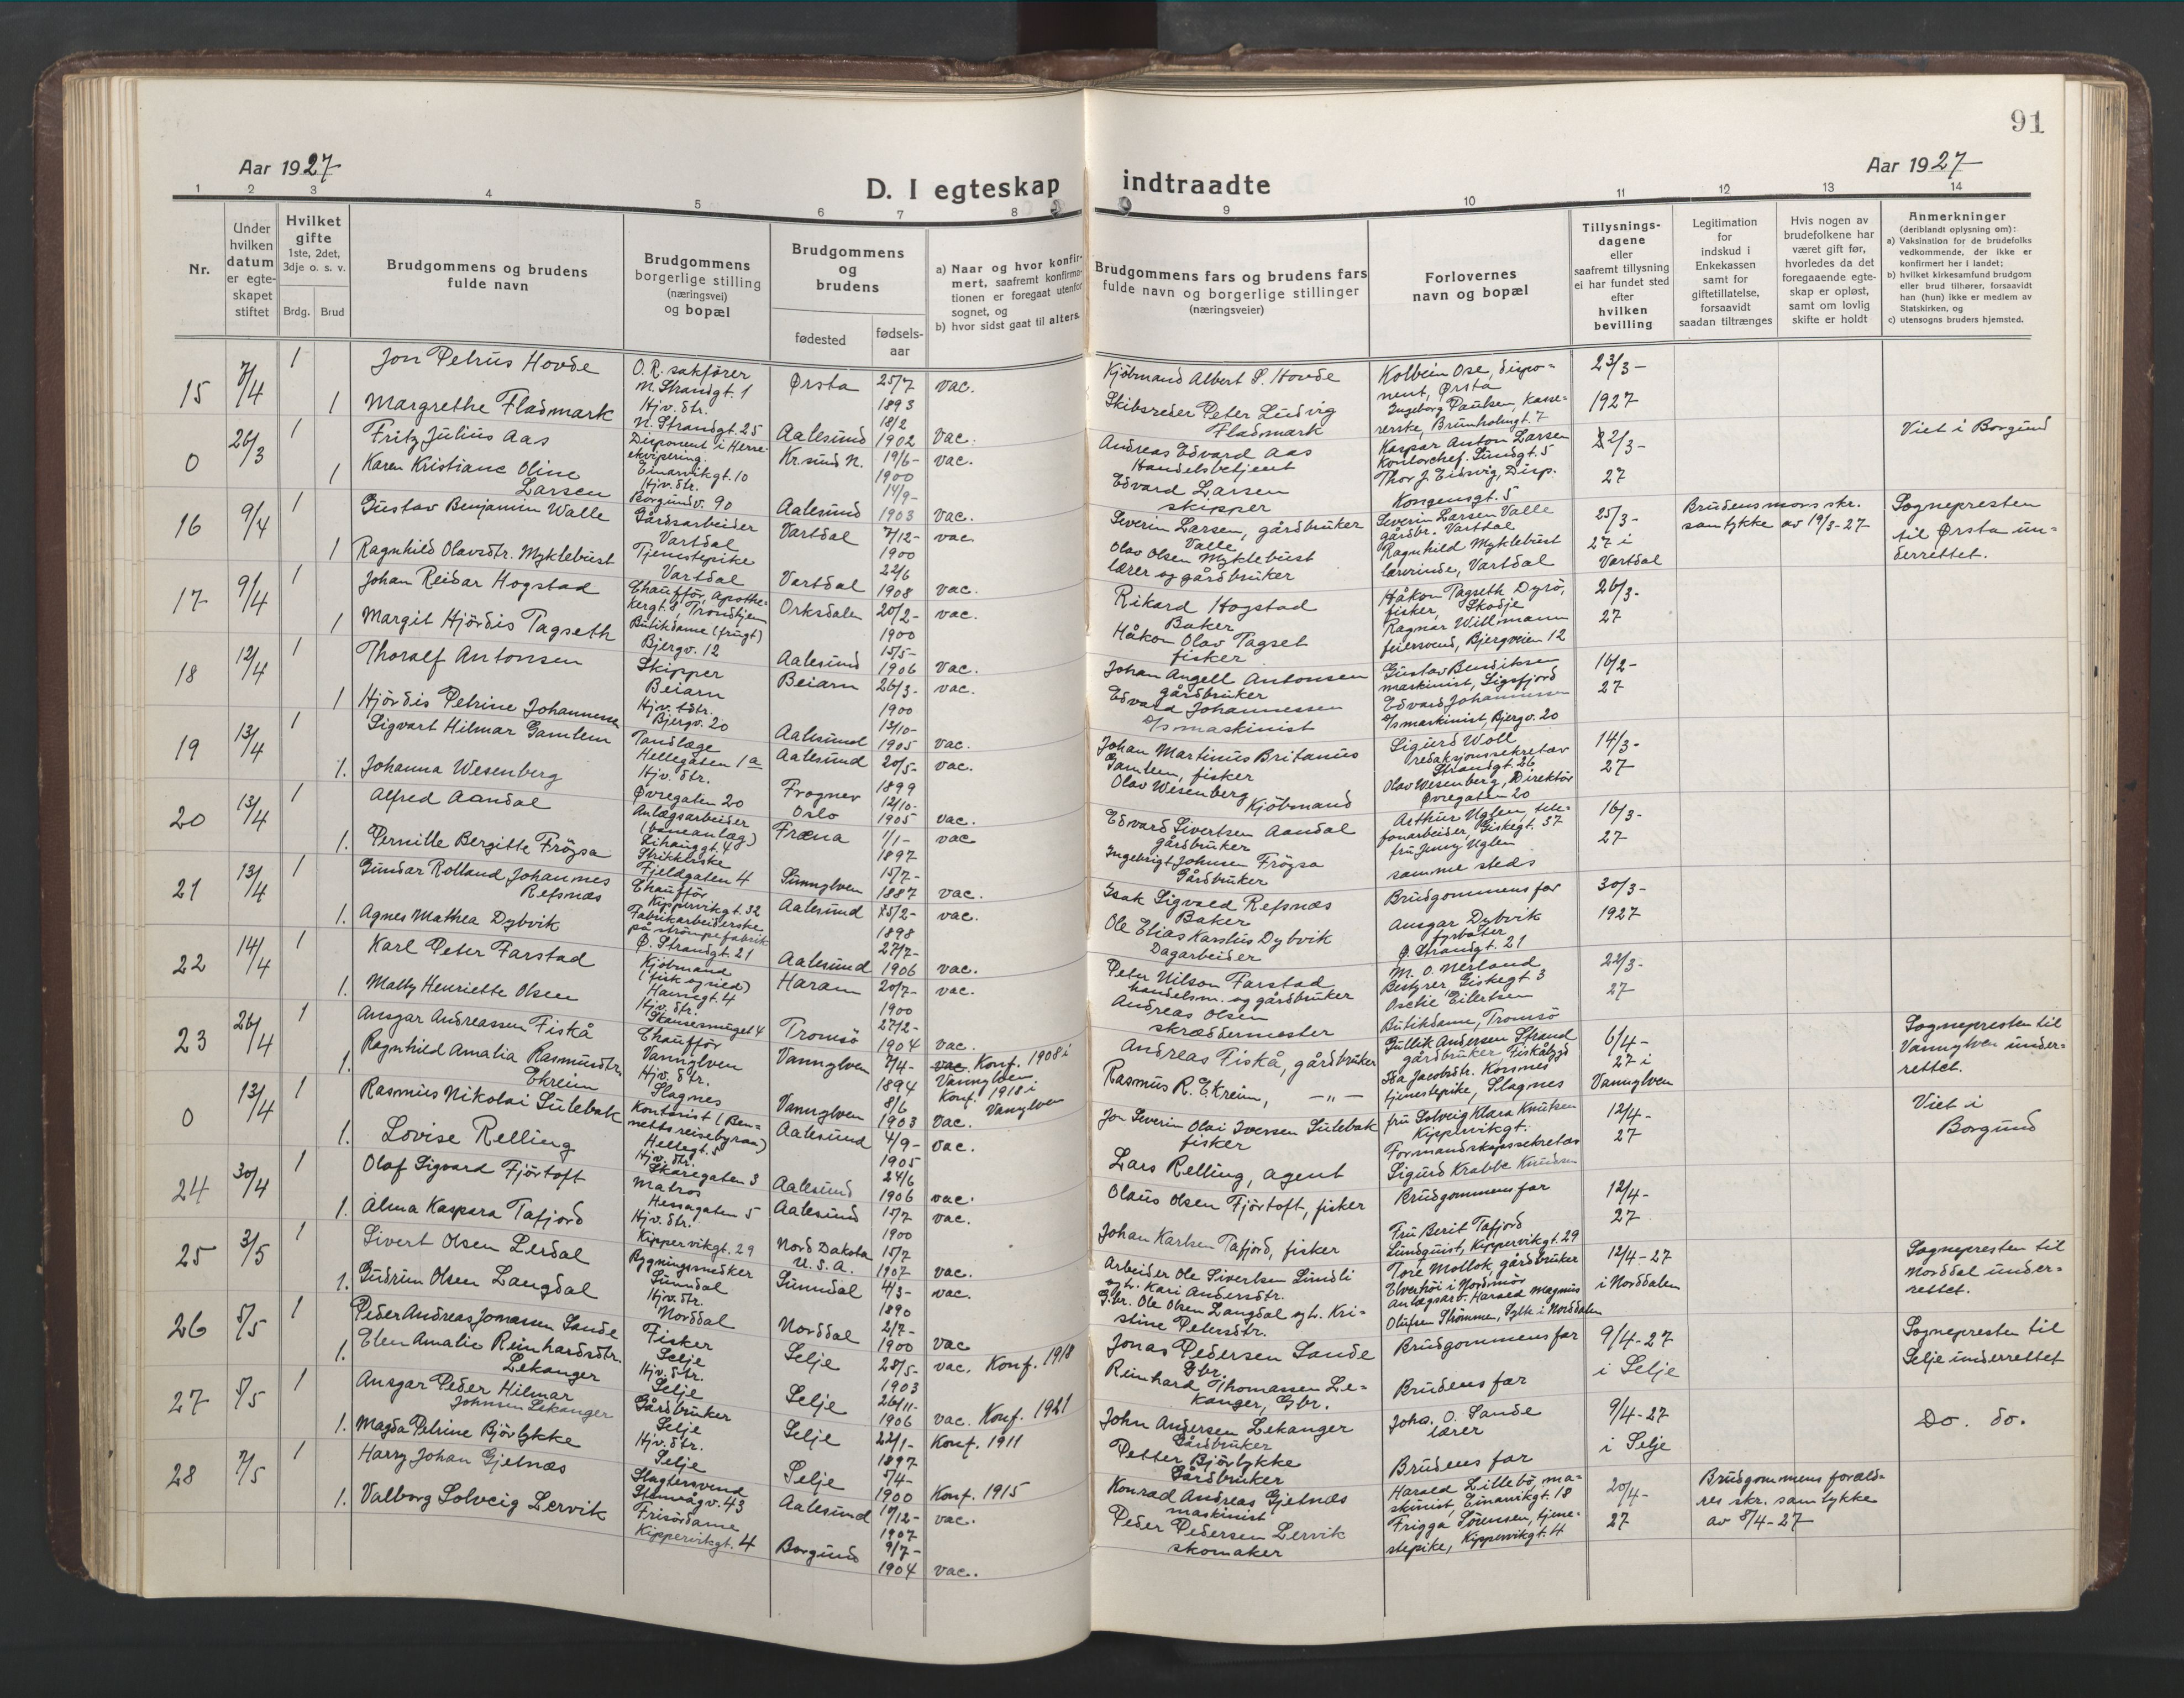 91
Aar 1927
Aar 1927
D. I egteskap indtraadte
1 2 3 4 5 6 7 8 9 10 11 12 13 14
Nr.
Under hvilken datum er egteskapet stiftet
Hvilket gifte 1ste, 2det, 3dje o. s. v.
Brdg. Brud
Brudgommens og brudens fulde navn
Brudgommens borgerlige stilling (næringsvei) og bopæl
Brudgommens og brudens
fødested
fødsels-aar
a) Naar og hvor konfirmert, saafremt konfirmationen er foregaat utenfor sognet, og
b) hvor sidst gaat til alters.
Brudgommens fars og brudens fars fulde navn og borgerlige stillinger (næringsveier)
Forlovernes navn og bopæl
Tillysnings-dagene eller saafremt tillysning ei har fundet sted efter hvilken bevilling
Legitimation for indskud i Enkekassen samt for giftetillatelse, forsaavidt saadan tiltrænges
Hvis nogen av brudefolkene har været gift før, hvorledes da det foregaaende egteskap er opløst, samt om lovlig skifte er holdt
Anmerkninger (deriblandt oplysning om):
a) Vaksination for de brudefolks vedkommende, der ikke er konfirmert her i landet;
b) hvilket kirkesamfund brudgom eller brud tilhører, forsaavidt han (hun) ikke er medlem av Statskirken, og
c) utensogns bruders hjemsted.
15 7/4 1 Jon Petrus Hovde O.R. sakfører N. Strandgt. 1 Ørsta 25/7 1893 vac. Kjöbmand Albert P. Hovde Kolbein Ose, disponent, Ørsta 23/3-
1 Margrethe Fladmark Hjv. dtr. N. Strandgt. 25 Aalesund 18/2 1902 vac. Skibsreder Peter Ludvig Fladmark Ingeborg Paulsen, kasserske, Brunholmgt. 7 1927
0 26/3 1 Fritz Julius Aas Disponent i Herreekvipering. Einarvikgt. 10 Kr.sund N. 19/6- 1900 vac. Andreas Edvard Aas Handelsbetjent Kaspar Anton Larsen Kontorchef. Lundgt. 5 22/3- Viet i Borgund
1 Karen Kristiane Oline Larsen Hjv. dtr. Borgundv. 90 Aalesund 14/9- 1903 vac. Edvard Larsen skipper Thor J. Eidsvig, Disp. Kongensgt. 5 27
16 9/4 1 Gustav Benjamin Walle Gårdsarbeider Vartdal Vartdal 7/12- 1900 vac. Severin Larsen, gårdbruker Valle Severin Larsen Valle gårdbr. Vartdal 25/3- Brudens mors skr. samtykke av 19/3-27 Sognepresten til Ørsta underrettet.
1 Ragnhild Olavsdtr. Myklebust Tjenestepike Vartdal Vartdal 22/6 1908 vac. Olav Olsen Myklebust lærer og gårdbruker Ragnhild Myklebust lærerinde, Vartdal 27 i Vartdal
17 9/4 1 Johan Reidar Hogstad Chauffør, Apothekergt. 8 Trondhjem Orksdalen 20/2- 1900 vac. Rikard Hogstad Baker Håkon Tagseth Dyrö, fisker, Skodje 26/3-
1 Margit Hjördis Tagseth Butikdame (frugt) Bjergv. 12 Aalesund 15/5- 1906 vac. Håkon Olav Tagset fisker Ragnar Willmann feiersvend, Bjergveien 12 27
18 12/4 1 Thoralf Antonsen Skipper Beiarn Beiarn 26/3- 1900 vac. Johan Angell Antonsen gårdbruker Gustav Bendiksen maskinist, Ligsfjord 16/2-
1 Hjördis Petrine Johannessen Hjv. dtr. Bjergv. 20 Aalesund 13/10- 1905 vac. Edvard Johannessen D/s maskinist Edvard Johannessen D/s maskinist, Bjergv. 20 27
19 13/4 1 Sigvart Hilmar Gamlem Tandlæge Hellegaten 1a Aalesund 20/5- 1899 vac. Johan Martinus Britanus Gamlem, fisker Sigurd Woll redaksjonssekretær Strandgt. 26 14/3-
1. Johanna Wesenberg Hjv. dtr. Øvregaten 20 Frogner Oslo 12/10- 1905 vac. Olav Wesenberg Kjöbmand Olav Wesenberg, Direktör Øvregaten 20 27
20 13/4 1 Alfred Aandal Anlægsarbeider (baneanlæg) Lihauggt. 48 Fræna 1/1- 1897 vac Edvard Sivertsen Aandal gårdbruker Arthur Uglen, telefonarbeider, Giskegt. 37 16/3-
1. Pernille Bergitte Fröysa Strikkerske Fjeldgaten 4 Sunnylven 15/7- 1887 vac. Ingebrigt Johnsen Fröysa Gårdbruker fru Jenny Uglen samme steds 27
21 13/4 1 Gunnar Rolland Johannes Refsnæs Chauffør Kippervikgt. 32 Aalesund 25/2- 1898 vac. Isak Sigvald Refsnæs Baker Brudgommens far 30/3-
1. Agnes Mathea Dybvik Fabrikarbeiderske på strömpefabrik Ø. Strandgt. 21 Aalesund 27/7- 1906 vac. Ole Elias Karstus Dybvik Dagarbeider Ansgar Dybvik fyrböter Ø. Strandgt. 21 1927
22 14/4 1 Karl Peter Farstad Kjöbmand Havnegt. 4 Haram 20/7- 1900 vac. Peter Nilson Farstad handelsm. og gårdbruker M. O. Nerland Bestyrer, Giskegt. 3 22/3-
1. Mally Henriette Olsen Hjv. dtr. Skansesmuget 4 Tromsö 27/2- 1904 vac. Andreas Olsen skræddermester Eilertsen Butikdame, Tromsö 27
23 26/4 1 Ansgar Andreassen Fiskå Chauffør Vannylven Vannylven 7/4- 1894 vac. Konf. 1908 i Vannylven Andreas Fiskå, gårdbruker Gullik Andersen Strand gårdbruker, Fiskåbygd 6/4- Sognepresten til Vannylven underrettet.
1. Ragnhild Amalia Rasmusdtr. Ekreim Hjv. dtr. Slagnes Vannylven 8/6 1903 Konf. 1918 i Vannylven vac. Rasmus R. Ekreim, —"— Ida Jacobsdtr. Korsnes tjenestepike, Slagnes 27 i Vannylven
0 13/4 1 Rasmus Nikolai Sulebak Kontorist (Bennetts reisebyraa) Hellegt. 5 Aalesund 4/9- 1905 vac. Jon Severin Olai Iversen Sulebak fisker fru Solveig Klara Knutsen Kippervikgt. 12/4- Viet i Borgund
1. Lovise Relling Hjv. dtr. Skaregaten 3 Aalesund 24/6 1906 vac. Lars Relling, agent Formandskapssekretær Sigurd Krabbe Knudsen 27
24 30/4 1 Olaf Sigvard Fjörtoft Matros Hessagaten 5 Aalesund 15/7 1900 vac. Olaus Olsen Fjörtoft, fisker Brudgommens far 12/4-
1. Alma Kaspara Tafjord Hjv. dtr. Kippervikgt. 29 Nord Dakota U.S.A. 15/7 1907 vac. Johan Karlsen Tafjord, fisker Fru Berit Tafjord Lundquist, Kippervikgt. 29 27
25 3/5 1 Sivert Olsen Lerdal Bygningssnedker Sunndal Sunndal 4/3- 1890 vac. Arbeider Ole Sivertsen Lundli og h. Kari Andersdtr. Tore Mollok, gårdbruker Elverhöi i Nordmör 12/4-27 Sognepresten til Norddal underrettet.
1. Gudrun Olsen Langdal Hjv. dtr. Norddal Norddal 2/7- 1900 vac G.br. Ole Olsen Langdal og h. Kristine Petersdtr. Anlægsarb. Harald Magnus Olufsen Strömmen, Sylte i Norddalen i Norddalen
26 5/5 1 Peder Andreas Jonassen Sande Fisker Selje Selje 28/5- 1903 vac. Konf. 1918 Jonas Pedersen Sande Gbr. Brudgommens far 9/4-27 Sognepresten til Selje underrettet
1. Elen Amalie Reinhardsdtr. Lekanger Hjv. dtr. Selje Selje 26/11- 1906 vac. Konf. 1921 Reinhard Thomassen Lekanger, Gbr. Brudens far i Selje
27 5/5 1 Ansgar Peder Hilmar Johnsen Lekanger Gårdbruker Selje Selje 22/1- 1897 Konf. 1911 John Andersen Lekanger Gårdbruker Johs. O. Sande lærer 9/4-27 Do. do.
1. Magda Petrine Björlykke Hjv. dtr. Selje Selje 5/4- 1900 Konf. 1915 Petter Björlykke Gårdbruker Brudens far i Selje
28 7/5 1 Harry Johan Gjetnæs Slagtersvend Stenvågv. 43 Aalesund 17/12- 1907 vac. Konrad Andreas Gjetnæs maskinist Harald Lillebö, maskinist, Einarvikgt. 18 20/4- Brudgommens forældres skr. samtykke av 8/4-27
1. Valborg Solveig Lervik Frisördame Kippervikgt. 4 Borgund 9/7- 1904 vac. Peder Pedersen Lervik skomaker Frigga Sörensen, tjenestepike, Kippervikgt. 4 27